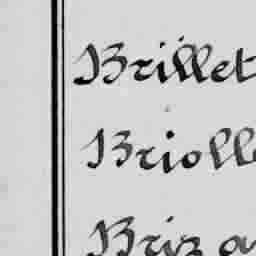 Brillet
Brioll
Briz a